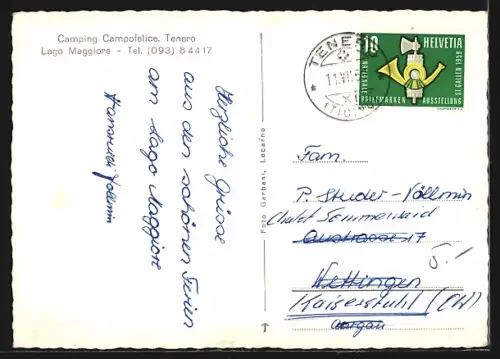 Camping Campofelice. Tenero
Lago Maggiore - Tel. (093) 8 44 17
Herzliche Grüsse
aus den schönen Ferien
am Lago Maggiore
Hansruedi Vollmin
Foto Garbani, Locarno
TENERO
11.VII.
(TICINO)
10
HELVETIA
NATIONALE
BRIEFMARKEN
AUSSTELLUNG
ST. GALLEN 1959
Fam.
P. Studer-Völlmin
Chalet Sommerwaid
Austrasse 17
Wettingen
Kaiserstuhl (OW)
Aargau